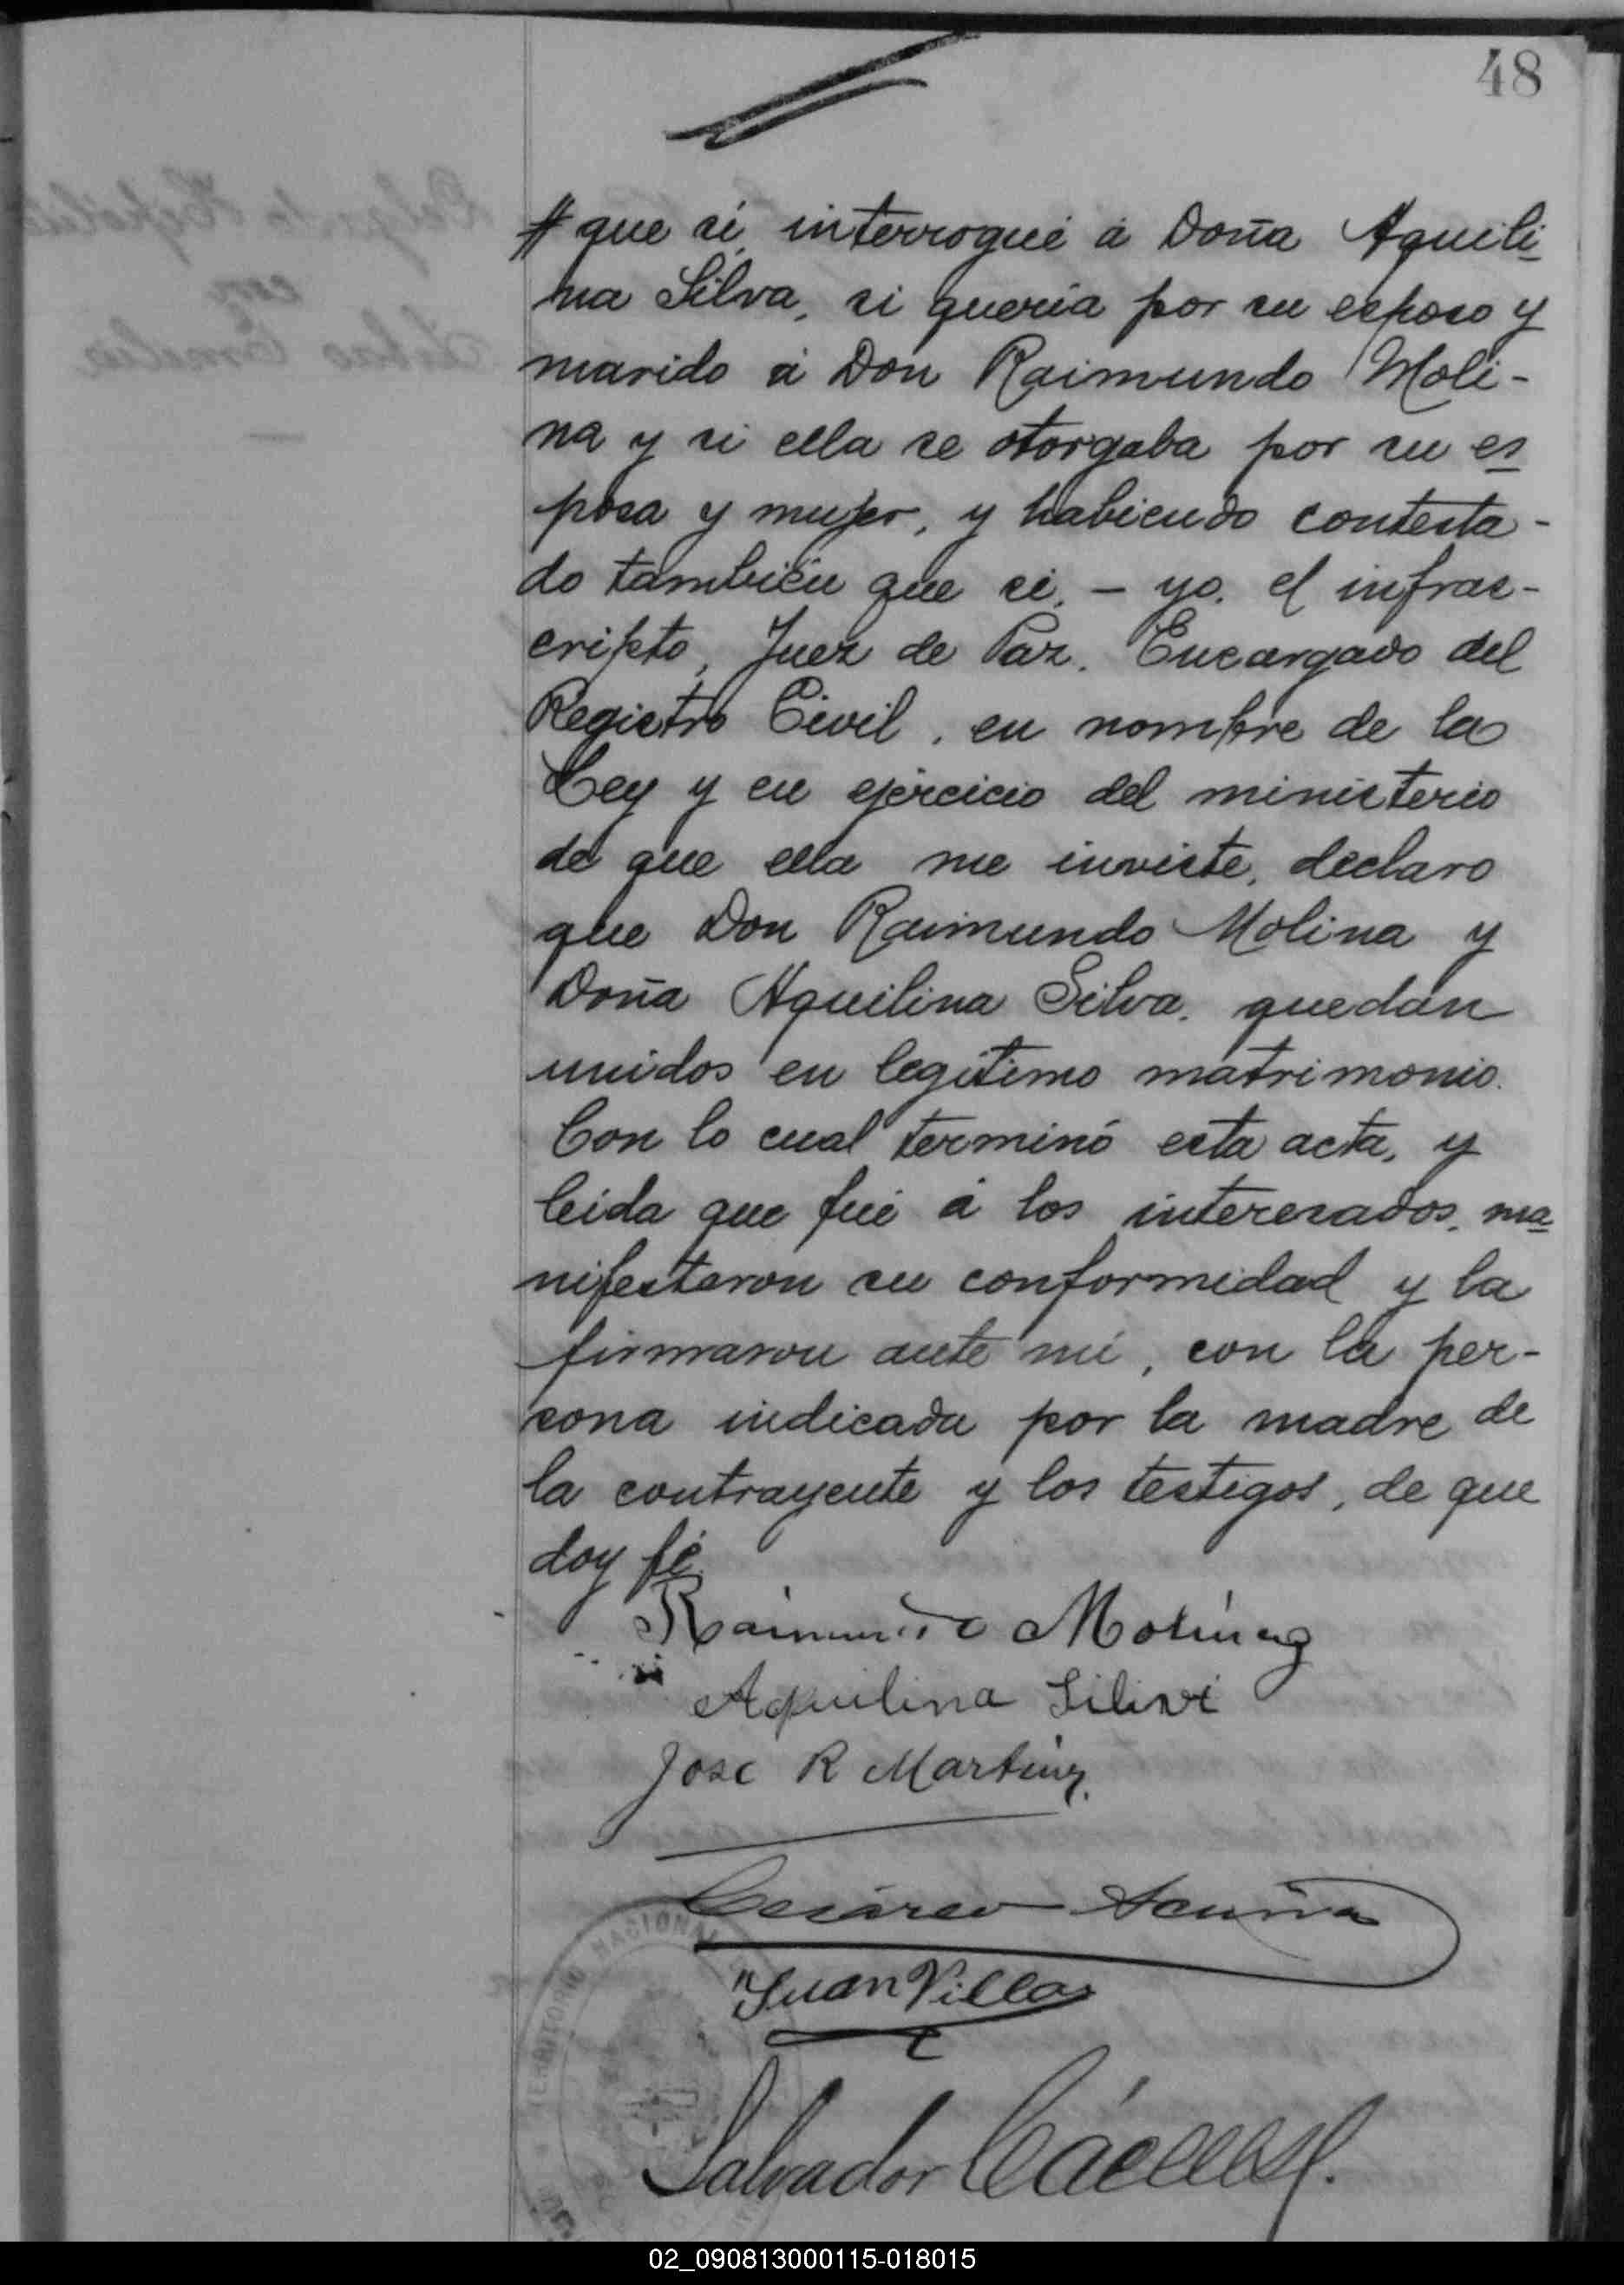 48
# que sí, interrogué á Doña Aquili-
na Silva, si quería por su esposo y
marido á Don Raimundo Moli-
na y si ella se otorgaba por su es-
posa y mujer, y habiendo contesta-
do también que si. – yo. el infras-
cripto, Juez de Paz. Encargado del
Registro Civil, en nombre de la
Ley y en ejercicio del ministerio
de que ella me inviste, declaro
que Don Raimundo Molina y
Doña Aquilina Silva, quedan
unidos en legítimo matrimonio.
Con lo cual terminó esta acta, y
leida que fué á los interesados, ma-
nifestaron su conformidad y la
firmaron ante mí, con la per-
sona indicada por la madre de
la contrayente y los testigos, de que
doy fé.
Raimundo Molina
Aquilina
Jose R Martinez
Cesáreo Acuña
Juan Villa
TERRITORIO NACIONAL
Salvador
02_090813000115-018015